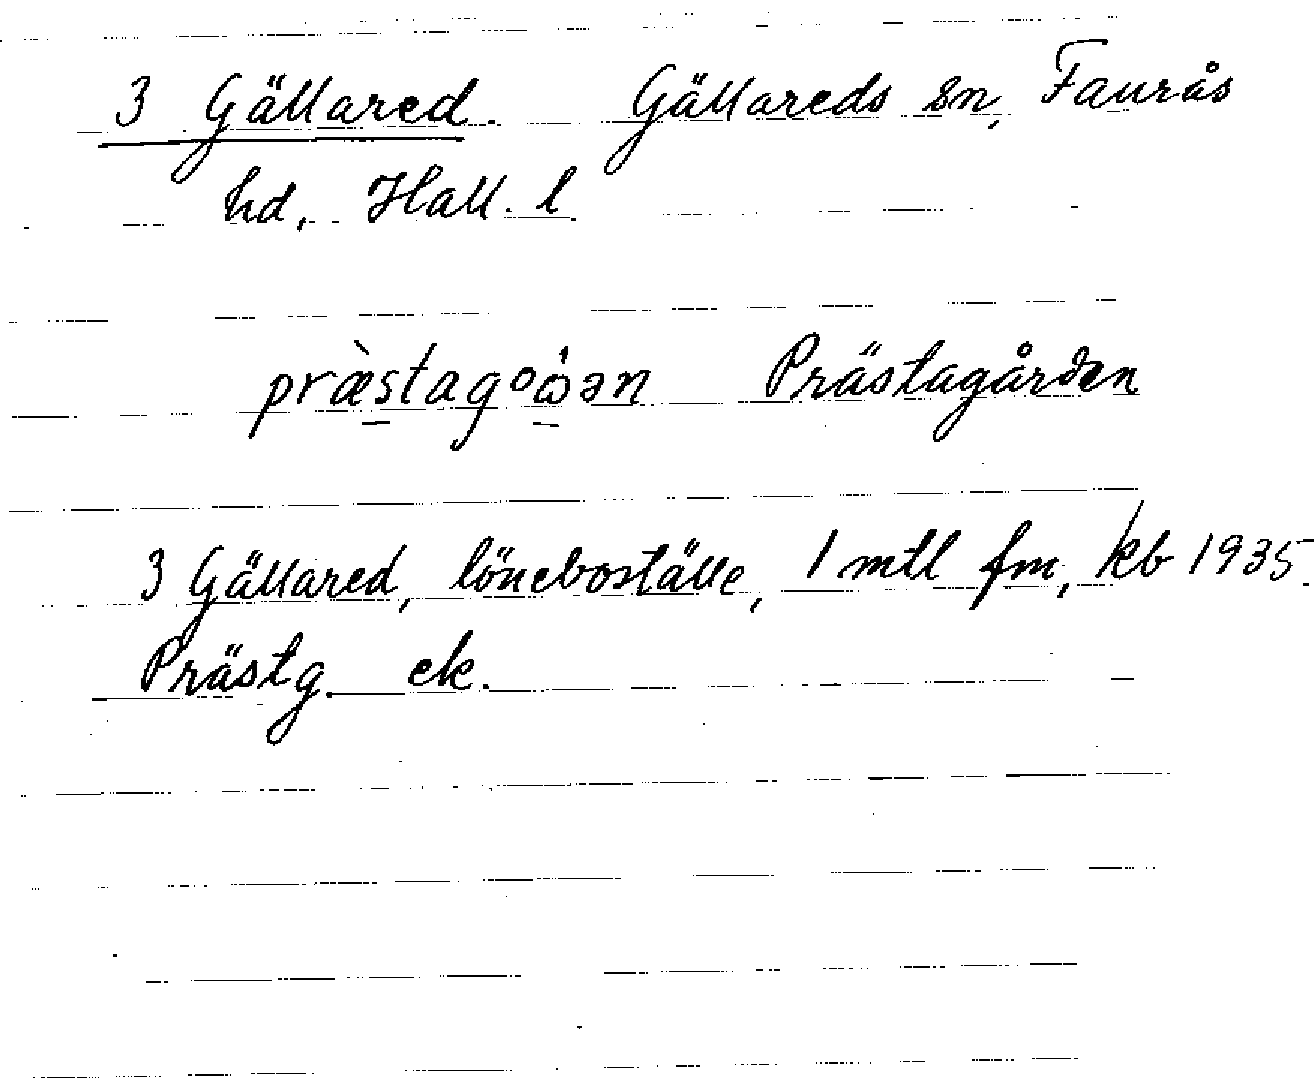 3 Gällared. Gällareds sn, Faurås
hd, Hall. l
præ̀stagoω̇ən Prästagården
3 Gällared, löneboställe, 1 mtl fm, kb 1935.
Prästg. ek.